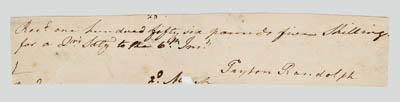 Recd. one hundred fifty six pounds five Shilling
for a Qrs. Saly to the 6th. Inst.
Peyton Randolph